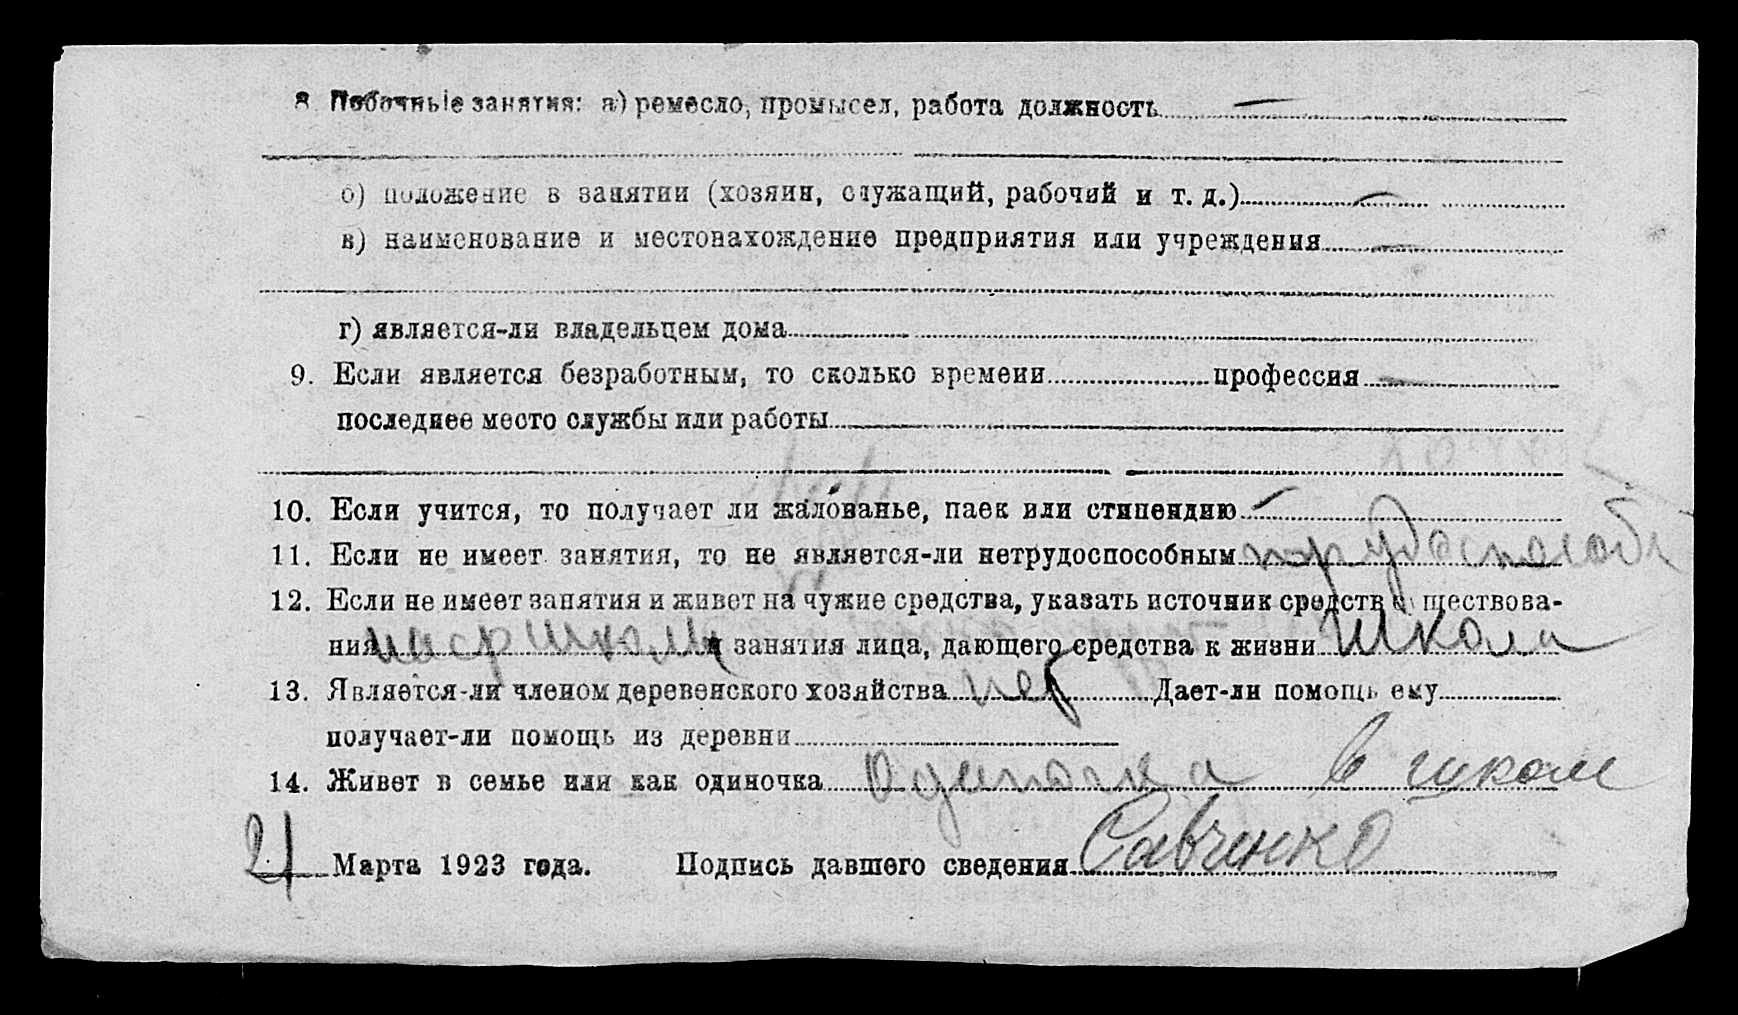 8. Побочные занятия: а) ремесло, промысел, работа должность —
б) положение в занятии (хозяин, служащий, рабочий и т. д.) —
в) наименование и местонахождение предприятия или учреждения —
г) является-ли владельцем дома
9. Если является безработным, то сколько времени профессия —
последнее место службы или работы
10. Если учится, то получает ли жалованье, паек или стипендию —
11. Если не имеет занятия, то не является-ли нетрудоспособным
12. Если не имеет занятия и живет на чужие средства, указать источник средств существова-
ния и занятия лица, дающего средства к жизни Школа
13. Является-ли членом деревенского хозяйства нет Дает-ли помощь ему
получает-ли помощь из деревни
14. Живет в семье или как одиночка одиночка в школе
21 Марта 1923 года. Подпись давшего сведения Савченко